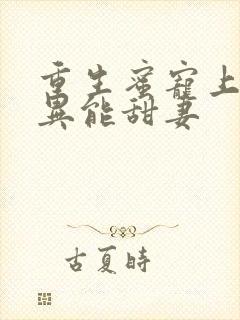 重生蜜宠上
異能甜妻
古夏時